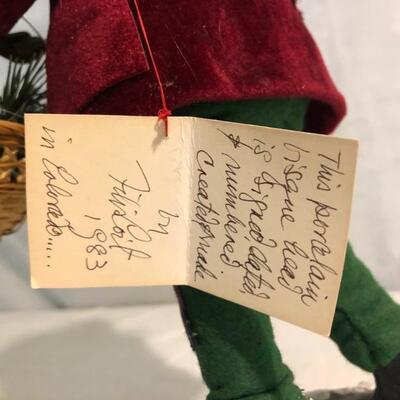 This porcelain
bisque head
is signed, dated,
& numbered
Created & Made
by
1983
in Colorado.....